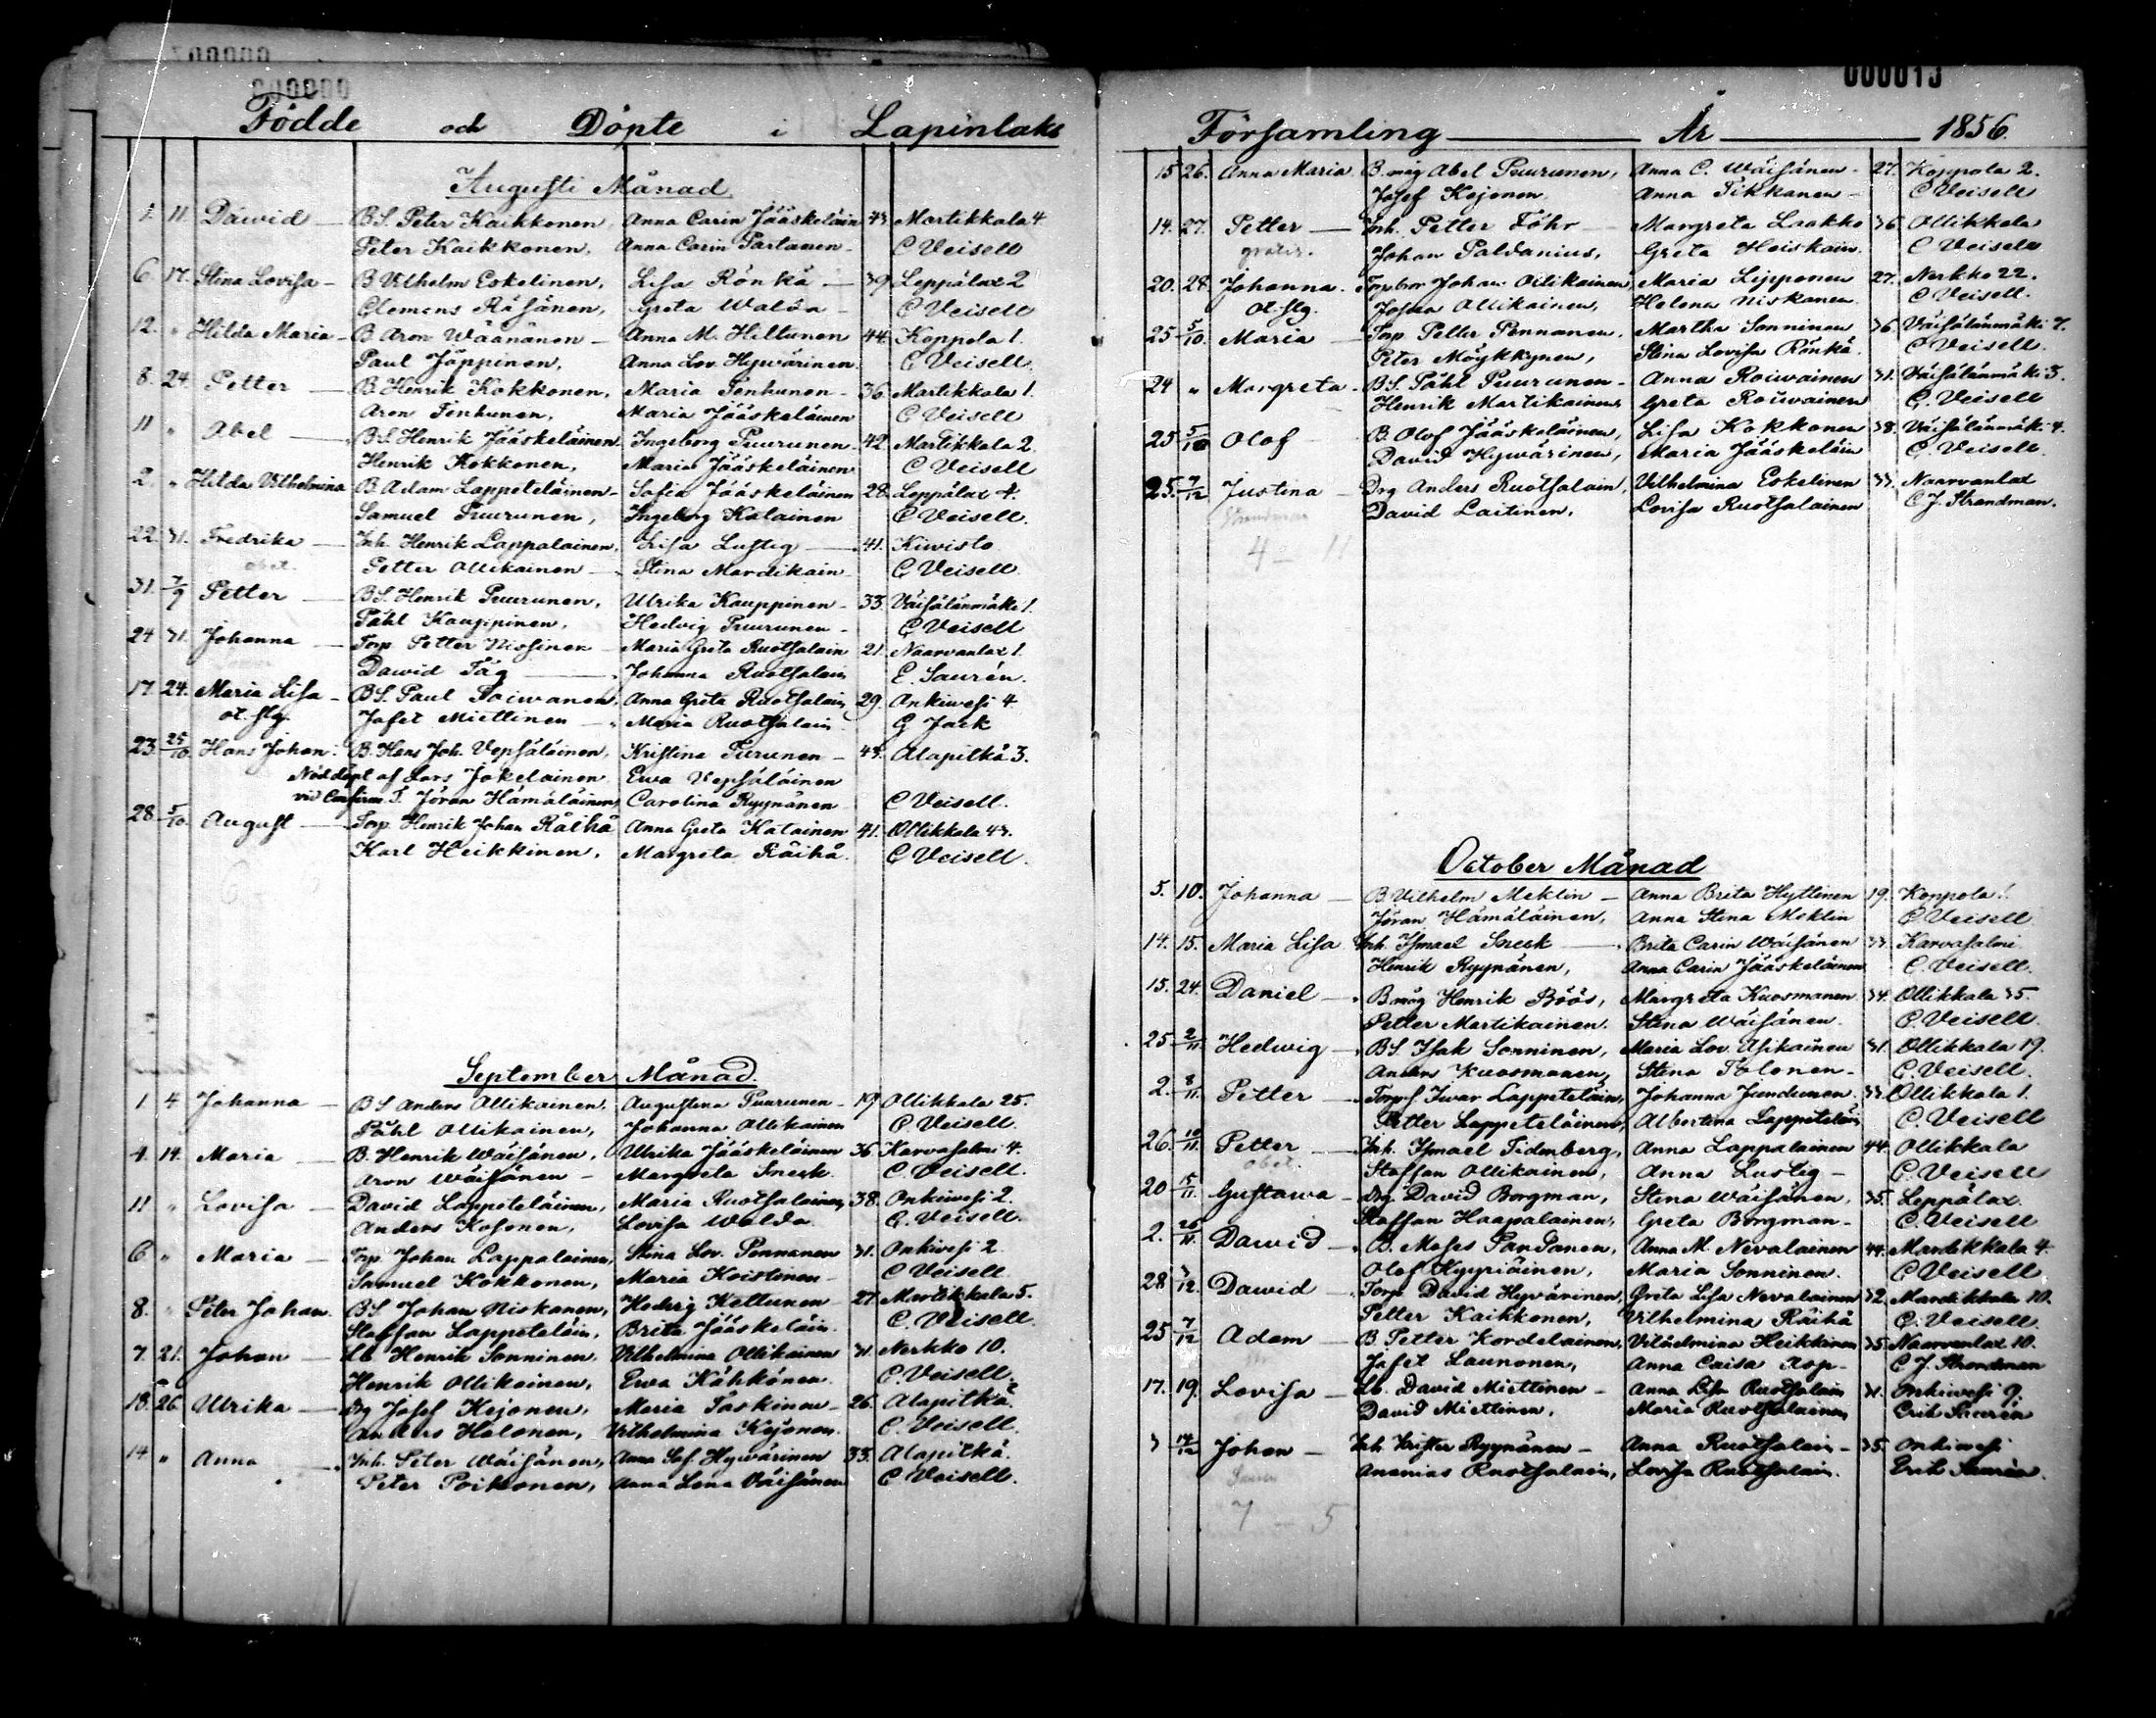 000000
000000
Födde och Döpte i Lapinlaks
Augusti Månad
1. 11. Dawid — BS. Peter Kaikkonen, Anna Carin Jääskeläin 43 Martikkala 4
Peter Kaikkonen, Anna Carin Partanen - C Veisell
6. 17. Stina Lovisa - B Vilhelm Eskelinen, Lisa Rönkä — 39 Leppälax 2
Clemens Räsänen, Greta Walda - C Veisell
12. " Hilda Maria - B Aron Wäänänen - Anna M. Hiltunen 44. Koppola 1.
Paul Jäppinen, Anna Lov. Hyvärinen. C Veisell.
8. 24. Petter — B Henrik Kokkonen, Maria Tenhunen - 36. Martikkala 1.
Aron Tenhunen, Maria Jääskeläinen C Veisell
11 " Abel — BS Henrik Jääskeläinen Ingeborg Puurunen 42. Martikkala 2.
Henrik Kokkonen, Maria Jääskeläinen C Veisell
2. " Hilda Vilhelmina B Adam Lappeteläinen - Sofia Jääskeläinen 28. Leppälax 4.
Samuel Puurunen, Ingeborg Katainen C Veisell.
22. 31. Fredrika — Inh. Henrik Lappalainen, Lisa Lustig — 41. Kiwisto
obet. Petter Ollikainen - Stina Mardikain C Veisell.
31. 7/9 Petter — BS. Henrik Puurunen, Ulrika Kauppinen - 33. Väisälänmäki 1.
Påhl Kauppinen, Hedvig Puurunen - C Veisell
24 31. Johanna — Torp Petter Nissinen - Maria Greta Ruotsalain 21. Naarvanlax 1.
Dawid Täg — Johanna Ruotsalain E. Saurén.
17. 24. Maria Lisa - BS. Paul Poiwanen, Anna Greta Ruotsalain 29. Onkiwesi 4
ot. slg. Jafet Miettinen - Maria Ruotsalain G Jack
23. 25/10. Hans Johan: B. Hans Joh. Vepsäläinen, Kristina Turunen - 43. Alapitkä 3.
Nöddöpt af Lars Jokelainen Ewa Vepsäläinen
vid Confirm. T. Jöran Hämäläinen Carolina Ryynänen C Veisell.
28. 5/10. August — Torp. Henrik Johan Räihä Anna Greta Katainen 41. Ollikkala 43.
Karl Heikkinen, Margreta Räihä. C Veisell.
September Månad.
1. 4 Johanna — BS Anders Ollikainen, Augustina Puurunen - 19 Ollikkala 25.
Påhl Ollikainen, Johanna Ollikainen C. Veisell.
4. 14. Maria — B. Henrik Wäisänen, Ulrika Jääskeläinen 36 Karvasalmi 4.
Aron Wäisänen - Margreta Sneck. C. Veisell.
11 " Lovisa — David Lappeteläinen, Maria Ruotsalainen 38. Onkiwesi 2.
Anders Kosonen, Lovisa Walda C. Veisell.
6 " Maria — Torp. Johan Lappalainen, Stina Lov. Pennanen 31. Onkivesi 2
Samuel Kokkonen, Maria Koistinen - C Veisell.
8. " Peter Johan. BS Johan Niskanen, Hedvig Keltunen - 27. Martikkala 5.
Staffan Lappeteläin, Brita Jääskeläin. C. Veisell.
7. 21. Johan — Lb Henrik Sonninen, Vilhelmina Ollikainen 31. Nerkko 10.
Henrik Ollikainen, Ewa Kähkönen. C. Veisell.
13. 26. Ulrika — Drg Josef Kejonen, Maria Taskinen - 26. Alapitkä.
Anders Halonen, Vilhelmina Kejonen. C. Veisell.
14. " Anna — Inh. Peter Wäisänen, Anna Sof. Hyvärinen 33. Alapitkä.
Peter Poikonen, Anna Lena Väisänen C Veisell.
000013
Församling — År — 1856.
15 26. Anna Maria. B.måg Abel Puurunen, Anna C. Wäisänen - 27. Koppola 2.
Josef Kejonen Anna Tikkanen - C Veisell
14. 27. Petter — Inh. Petter Föhr — Margreta Laakko 36 Ollikkala
gratis. Johan Paldanius, Greta Heiskain. C Veisell
20. 28. Johanna. Torpbor Johan Ollikainen, Maria Lipponen 27. Nerkko 22.
ot. slg. Josua Ollikainen, Helena Niskanen C Veisell.
25 5/10. Maria — Torp Petter Pennanen, Martha Sonninen 36 Väisälänmäki 7.
Peter Möykkynen, Stina Lovisa Rönkä. C Veisell.
24 " Margreta - BS. Påhl Puurunen - Anna Roiwainen 31. Väisälänmäki 3.
Henrik Martikainen, Greta Roiwainen C. Veisell
25 5/10 Olof B. Olof Jääskeläinen, Lisa Kokkonen 38. Väisälänmäki 4.
David Hyvärinen, Maria Jääskeläin C. Veisell.
25. 7/12 Justina — Drg Anders Ruotsalain, Vilhelmina Eskelinen 33. Naarvanlax
Strandman David Laitinen. Lovisa Ruotsalainen C J. Strandman.
4 - 11
October Månad
5. 10. Johanna — B Vilhelm Meklin - Anna Brita Hyttinen 19. Koppola 1.
Jöran Hämäläinen, Anna Stina Meklin C Veisell
14. 15. Maria Lisa Inh. Ismael Sneck — Brita Carin Wäisänen 33. Karvasalmi
Henrik Ryynänen, Anna Carin Jääskeläinen C. Veisell.
15. 24. Daniel — B.måg Henrik Böös, Margreta Kuosmanen 34. Ollikkala 35.
Petter Martikainen. Stina Wäisänen. C. Veisell.
25 2/11. Hedwig — BS. Isak Sonninen, Maria Lov. Asikainen 31. Ollikkala 19.
Anders Kuosmanen, Stina Tolonen - C. Veisell.
2. 8/11. Petter — Torp.s. Iwar Lappeteläin, Johanna Jundunen 33. Ollikkala 1.
Petter Lappeteläinen, Albertina Lappeteläin C. Veisell
26. 10/11. Petter — Inh. Ismael Tidenberg, Anna Lappalainen 44. Ollikkala
obet. Staffan Ollikainen, Anna Lustig - C. Veisell
20 15/11. Gustawa - Drg David Borgman, Stina Wäisänen, 35. Leppälax.
Staffan Haapalainen, Greta Borgman - C. Veisell
2. 26/11. Dawid — B. Moses Pandanen, Anna M. Nevalainen 44. Mardikkala 4.
Olof Kyyriäinen, Maria Sonninen. C Veisell
28 3/12 Dawid — Torp. David Hyvärinen, Greta Lisa Nevalainen 32. Mardikkala 10.
Petter Kaikkonen, Vilhelmina Räihä C. Veisell.
25 7/12 Adam — B Petter Kordelainen, Vilhelmina Heikkinen 35. Naarvanlax 10.
Jafet Launonen, Anna Caisa Rop - C J. Strandman
17. 19. Lovisa — Lb. David Miettinen - Anna Lisa Ruotsalain 31. Onkiwesi 9.
David Miettinen, Maria Ruotsalainen Erik Saurén
3 14/12 Johan — Inh Krister Ryynänen - Anna Ruotsalain - 35. Onkiwesi
Ananias Ruotsalain, Lovisa Ruotsalain. Erik Saurén.
7 - 5